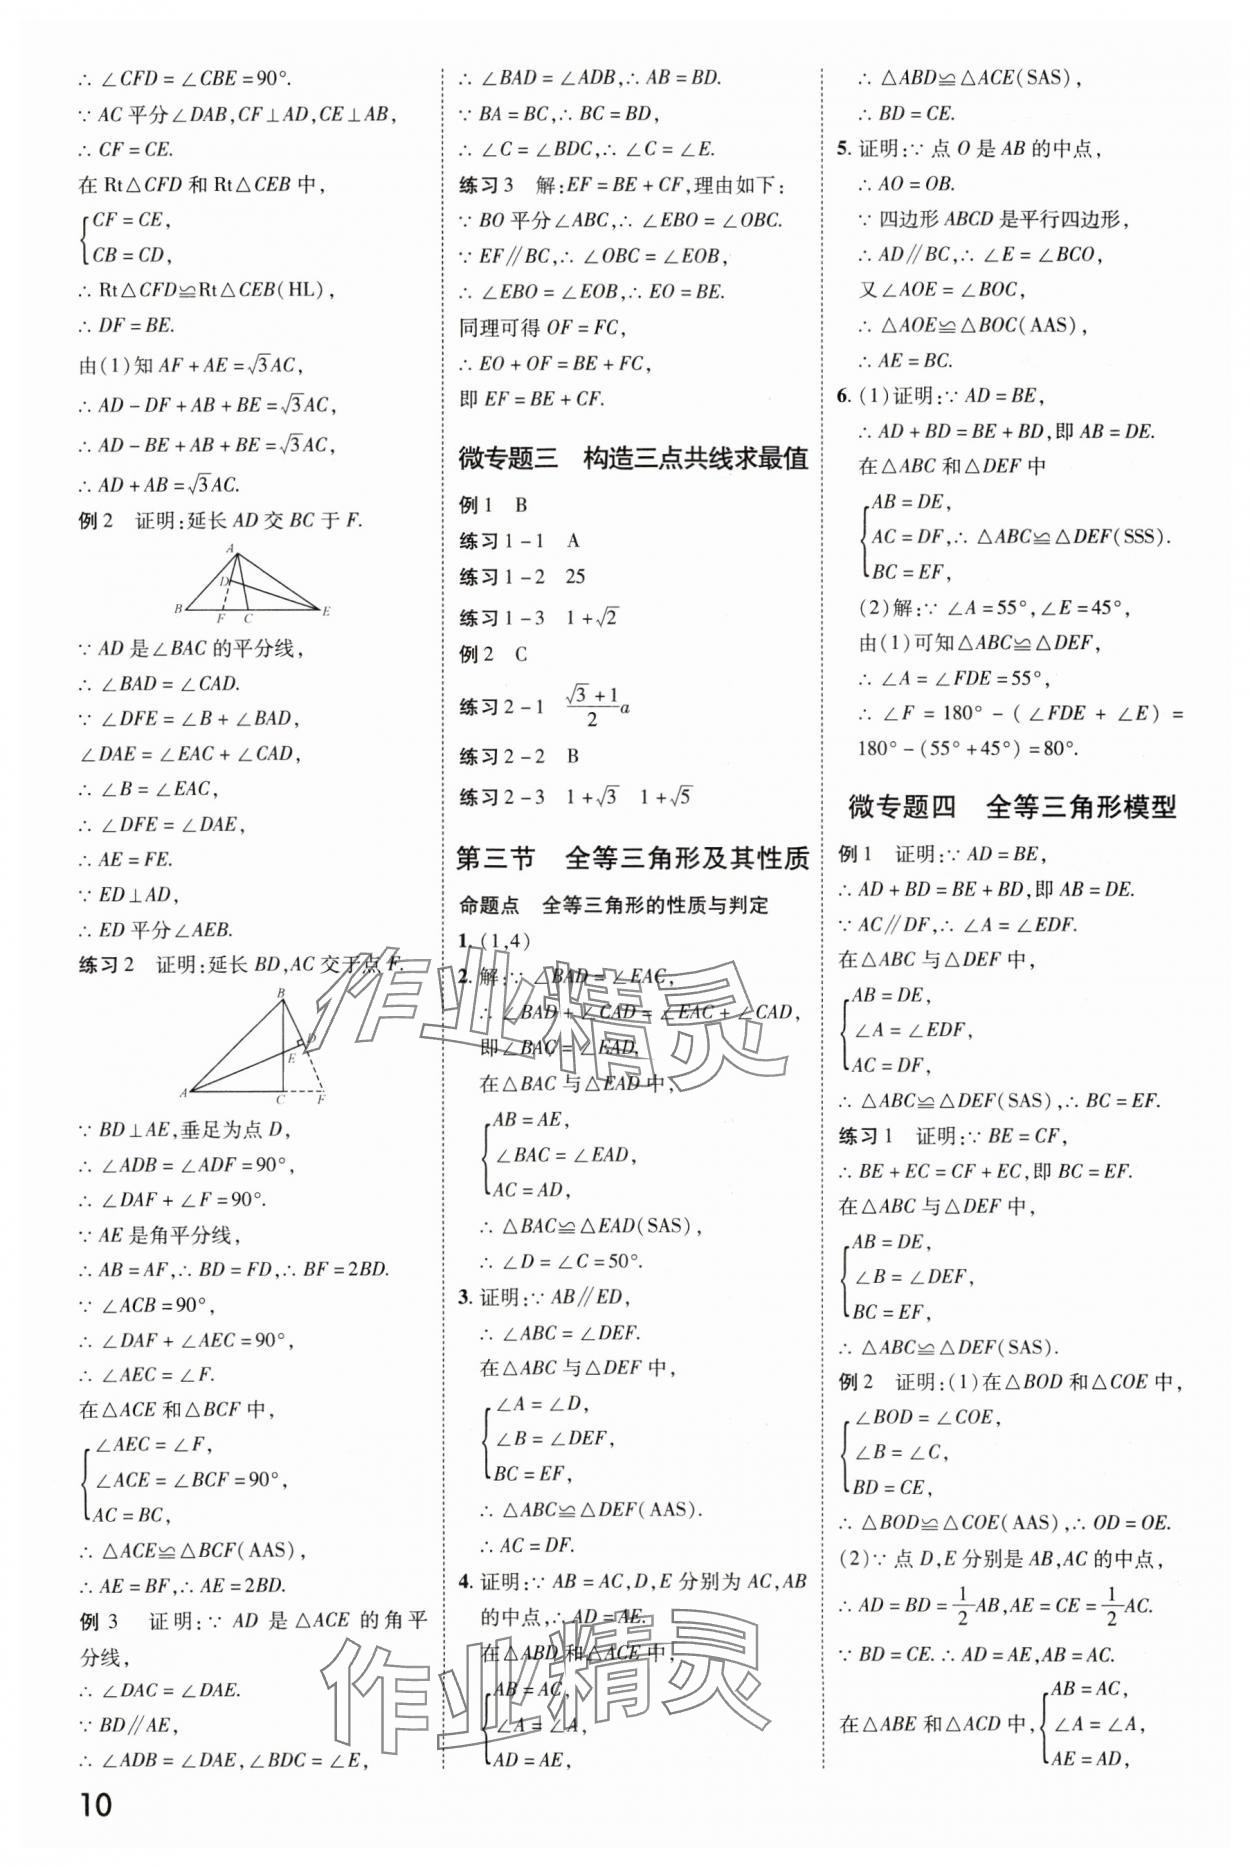 ∴ ∠CFD = ∠CBE = 90°.
∵ AC 平分∠DAB,CF⊥AD,CE⊥AB,
∴ CF = CE.
在 Rt△CFD 和 Rt△CEB 中,
CF = CE,
CB = CD,
∴ Rt△CFD≌Rt△CEB(HL),
∴ DF = BE.
由(1)知 AF + AE = √3AC,
∴ AD - DF + AB + BE = √3AC,
∴ AD - BE + AB + BE = √3AC,
∴ AD + AB = √3AC.
例2 证明:延长 AD 交 BC 于 F.
A
D
B F C E
∵ AD 是∠BAC 的平分线,
∴ ∠BAD = ∠CAD.
∵ ∠DFE = ∠B + ∠BAD,
∠DAE = ∠EAC + ∠CAD,
∴ ∠B = ∠EAC,
∴ ∠DFE = ∠DAE,
∴ AE = FE.
∵ ED⊥AD,
∴ ED 平分∠AEB.
练习2 证明:延长 BD,AC 交于点 F.
B
D
E
A C F
∵ BD⊥AE,垂足为点 D,
∴ ∠ADB = ∠ADF = 90°,
∴ ∠DAF + ∠F = 90°.
∵ AE 是角平分线,
∴ AB = AF,∴ BD = FD,∴ BF = 2BD.
∵ ∠ACB = 90°,
∴ ∠DAF + ∠AEC = 90°,
∴ ∠AEC = ∠F.
在△ACE 和△BCF 中,
∠AEC = ∠F,
∠ACE = ∠BCF = 90°,
AC = BC,
∴ △ACE≌△BCF(AAS),
∴ AE = BF,∴ AE = 2BD.
例3 证明:∵ AD 是△ACE 的角平
分线,
∴ ∠DAC = ∠DAE.
∵ BD∥AE,
∴ ∠ADB = ∠DAE,∠BDC = ∠E,
10
∴ ∠BAD = ∠ADB,∴ AB = BD.
∵ BA = BC,∴ BC = BD,
∴ ∠C = ∠BDC,∴ ∠C = ∠E.
练习3 解:EF = BE + CF,理由如下:
∵ BO 平分∠ABC,∴ ∠EBO = ∠OBC.
∵ EF∥BC,∴ ∠OBC = ∠EOB,
∴ ∠EBO = ∠EOB,∴ EO = BE.
同理可得 OF = FC,
∴ EO + OF = BE + FC,
即 EF = BE + CF.
微专题三 构造三点共线求最值
例1 B
练习1-1 A
练习1-2 25
练习1-3 1+√2
例2 C
练习2-1 (√3+1)/2 a
练习2-2 B
练习2-3 1+√3 1+√5
第三节 全等三角形及其性质
命题点 全等三角形的性质与判定
1. (1,4)
2. 解:∵ ∠BAD = ∠EAC,
∴ ∠BAD + ∠CAD = ∠EAC + ∠CAD,
即∠BAC = ∠EAD,
在△BAC 与△EAD 中,
AB = AE,
∠BAC = ∠EAD,
AC = AD,
∴ △BAC≌△EAD(SAS),
∴ ∠D = ∠C = 50°.
3. 证明:∵ AB∥ED,
∴ ∠ABC = ∠DEF.
在△ABC 与△DEF 中,
∠A = ∠D,
∠B = ∠DEF,
BC = EF,
∴ △ABC≌△DEF(AAS).
∴ AC = DF.
4. 证明:∵ AB = AC,D,E 分别为 AC,AB
的中点,∴ AD = AE.
在△ABD 和△ACE 中,
AB = AC,
∠A = ∠A,
AD = AE,
∴ △ABD≌△ACE(SAS),
∴ BD = CE.
5. 证明:∵ 点 O 是 AB 的中点,
∴ AO = OB.
∵ 四边形 ABCD 是平行四边形,
∴ AD∥BC,∴ ∠E = ∠BCO,
又∠AOE = ∠BOC,
∴ △AOE≌△BOC(AAS),
∴ AE = BC.
6. (1)证明:∵ AD = BE,
∴ AD + BD = BE + BD,即 AB = DE.
在△ABC 和△DEF 中
AB = DE,
AC = DF,∴ △ABC≌△DEF(SSS).
BC = EF,
(2)解:∵ ∠A = 55°,∠E = 45°,
由(1)可知△ABC≌△DEF,
∴ ∠A = ∠FDE = 55°,
∴ ∠F = 180° - (∠FDE + ∠E) =
180° - (55° + 45°) = 80°.
微专题四 全等三角形模型
例1 证明:∵ AD = BE,
∴ AD + BD = BE + BD,即 AB = DE.
∵ AC∥DF,∴ ∠A = ∠EDF.
在△ABC 与△DEF 中,
AB = DE,
∠A = ∠EDF,
AC = DF,
∴ △ABC≌△DEF(SAS),∴ BC = EF.
练习1 证明:∵ BE = CF,
∴ BE + EC = CF + EC,即 BC = EF.
在△ABC 与△DEF 中,
AB = DE,
∠B = ∠DEF,
BC = EF,
∴ △ABC≌△DEF(SAS).
例2 证明:(1)在△BOD 和△COE 中,
∠BOD = ∠COE,
∠B = ∠C,
BD = CE,
∴ △BOD≌△COE(AAS),∴ OD = OE.
(2)∵ 点 D,E 分别是 AB,AC 的中点,
∴ AD = BD = 1/2 AB,AE = CE = 1/2 AC.
∵ BD = CE. ∴ AD = AE,AB = AC.
在△ABE 和△ACD 中,
AB = AC,
∠A = ∠A,
AE = AD,
作业精灵
作业精灵